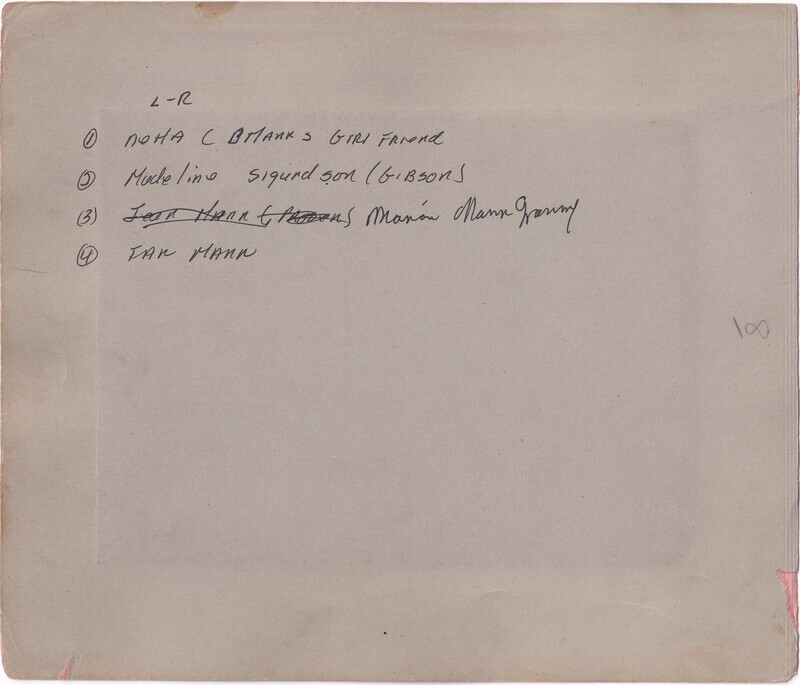 L-R
① NOMA ( BMANNS GIRL FRIEND
② Madeline Sigurdson (GIBSON)
③ Jean Mann Marion Mann
④ IAN MANN
100